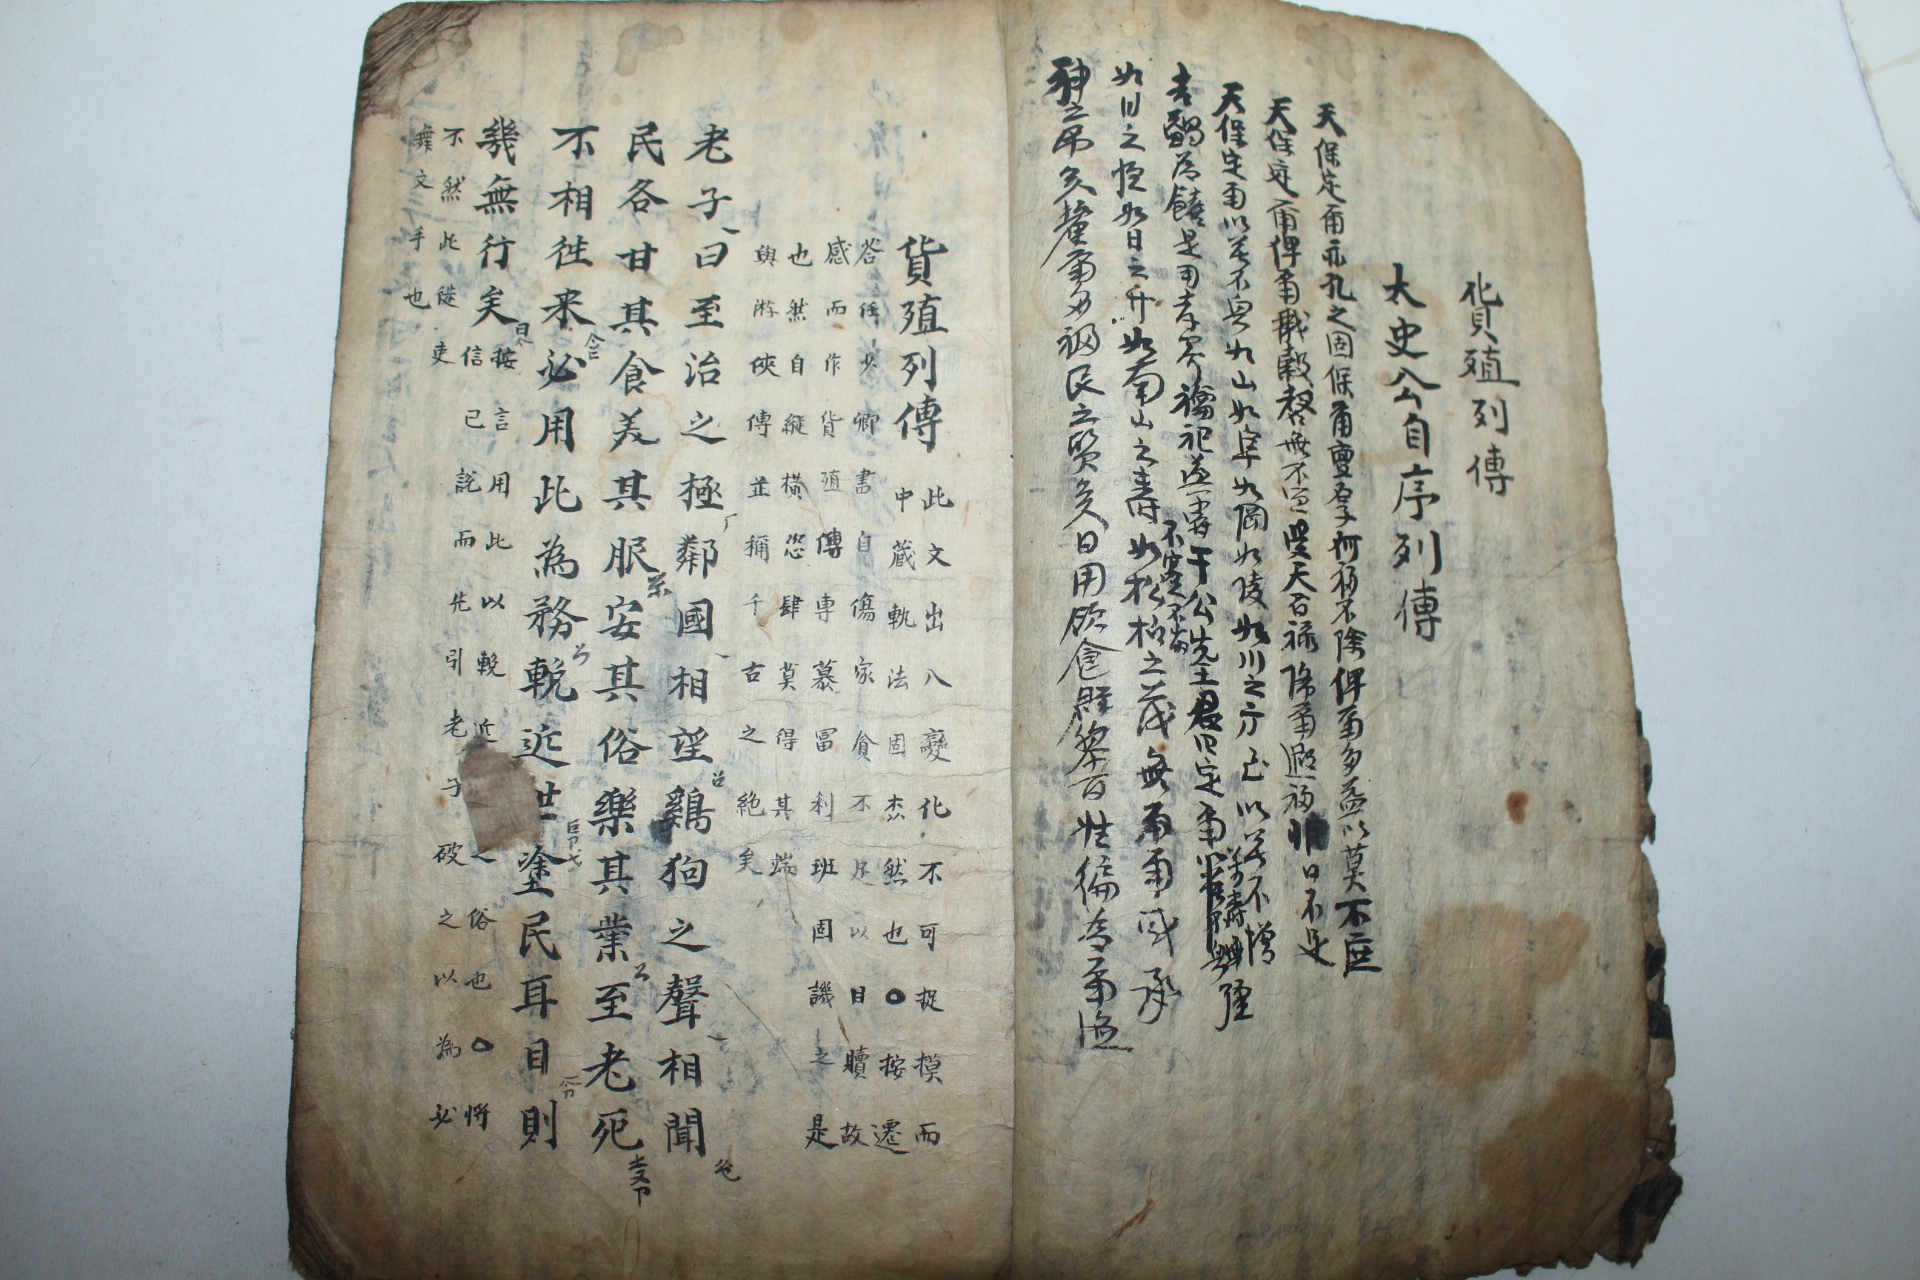 貨殖列傳
太史公自序列傳
天保定甭亦孔之固保甭亶孥何福不除俾甭多益以莫不庶
天保定甭俾甭戩穀罄無不宜受天百祿降甭遐福 日不足
天保定甭以莫不興如山如阜如岡如陵如川之方至以莫不增
吉蠲為饎是用孝享禴祀烝嘗于公先王君曰定甭萬壽無疆
不騫不崩
如月之恒如日之升如南山之壽如松栢之茂無甭甭或承
神之吊矣詒甭多福民之質矣日用飲食群黎百姓徧為甭德
貨殖列傳
此文出入變化不可捉摸而
中藏軌法固森然也〇按遷
答任少卿書自傷家貧不足以自贖故
感而作貨殖傳專慕富利班固譏之是
也然自縱橫恣肆莫得其端
與游俠傳並稱千古之絶矣
老子曰至治之極鄰國相望鷄狗之聲相聞
民各甘其食美其服安其俗樂其業至老死
不相徃来必用此為務輓近世塗民耳目則
幾無行矣
按言用此以輓近之俗也〇將
信已說而先引老子破之以為必
不然此從吏
舞文手也